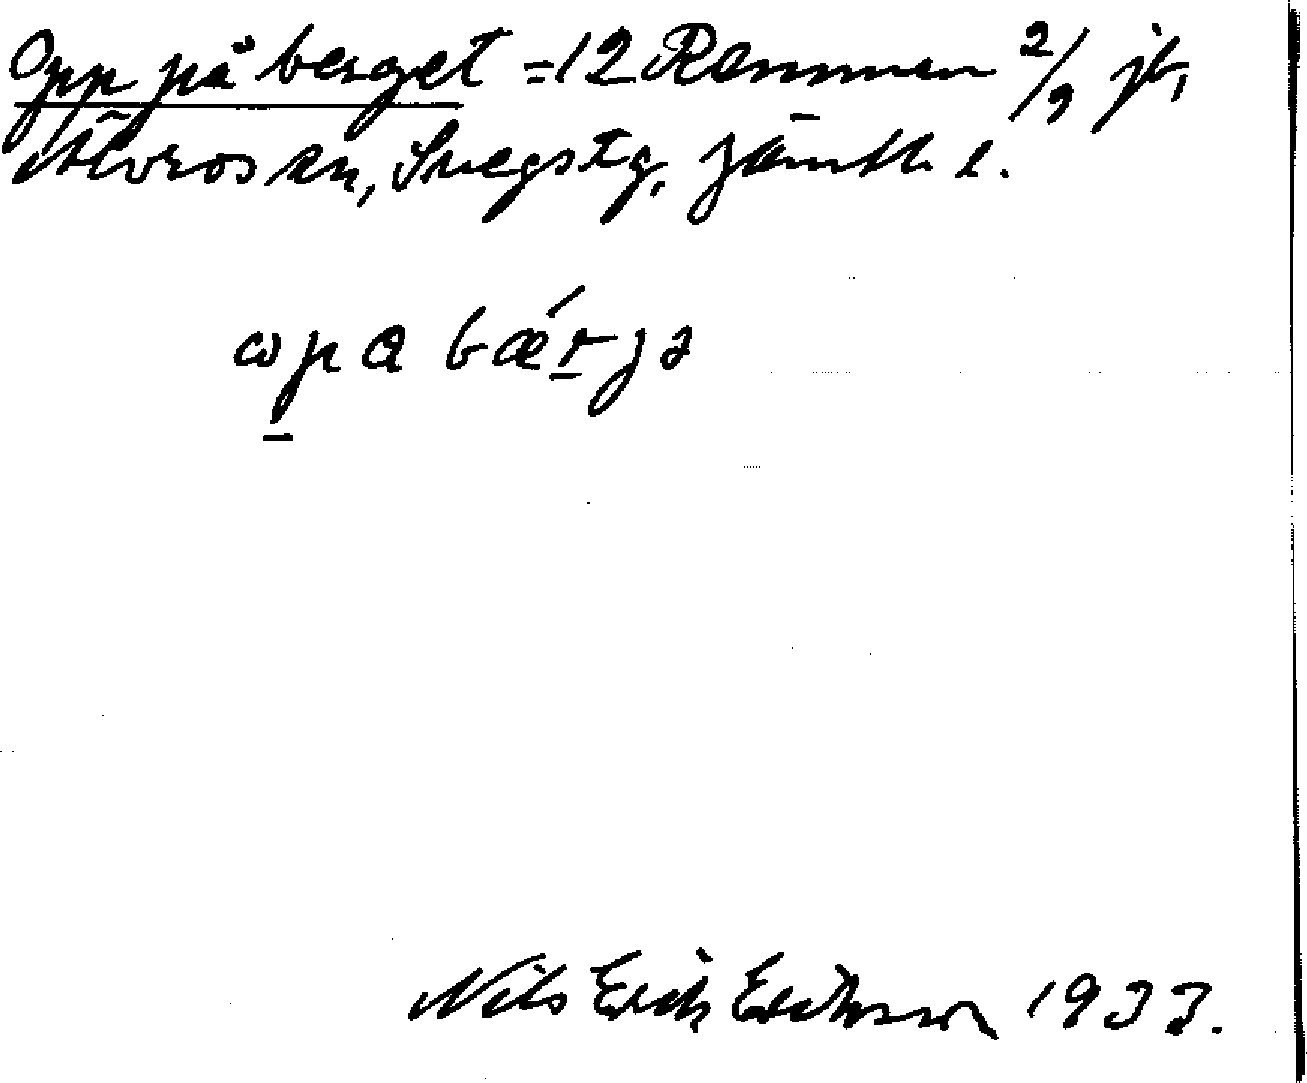 Opp på berget = 12 Remmen 2/9 jb,
Älvros sn, Svegs tg, Jämtl. l.
ωpa bǽrjə
Nils Erik Eriksson 1933.